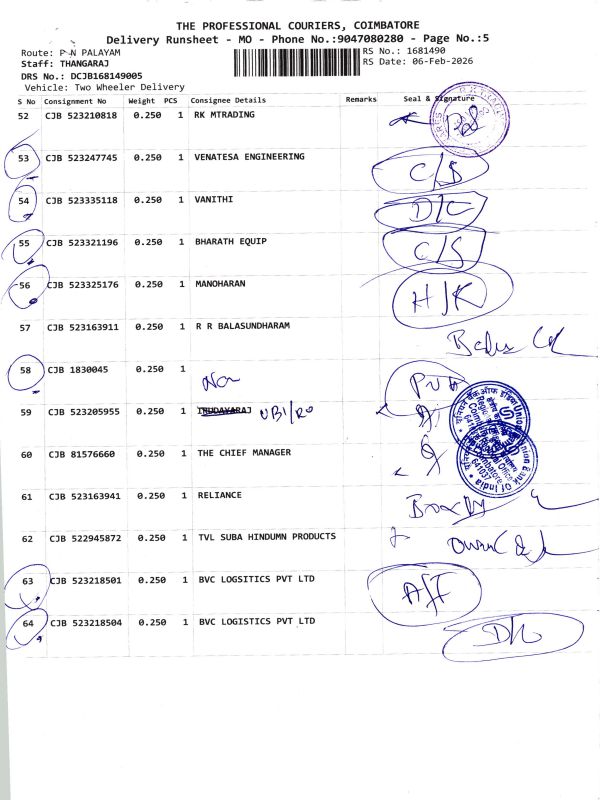 THE PROFESSIONAL COURIERS, COIMBATORE
Delivery Runsheet - MO - Phone No.:9047080280 - Page No.:5
Route: P N PALAYAM
RS No.: 1681490
Staff: THANGARAJ
RS Date: 06-Feb-2026
DRS No.: DCJB168149005
Vehicle: Two Wheeler Delivery
S No Consignment No Weight PCS Consignee Details Remarks Seal & Signature
52 CJB 523210818 0.250 1 RK MTRADING
53 CJB 523247745 0.250 1 VENATESA ENGINEERING C/S
54 CJB 523335118 0.250 1 VANITHI D/C
55 CJB 523321196 0.250 1 BHARATH EQUIP C/S
56 CJB 523325176 0.250 1 MANOHARAN H/K
57 CJB 523163911 0.250 1 R R BALASUNDHARAM
58 CJB 1830045 0.250 1
59 CJB 523205955 0.250 1 IRUDAYARAJ UBI/RO
60 CJB 81576660 0.250 1 THE CHIEF MANAGER
Union Bank Of India
61 CJB 523163941 0.250 1 RELIANCE
62 CJB 522945872 0.250 1 TVL SUBA HINDUMN PRODUCTS
63 CJB 523218501 0.250 1 BVC LOGSITICS PVT LTD A/F
64 CJB 523218504 0.250 1 BVC LOGISTICS PVT LTD